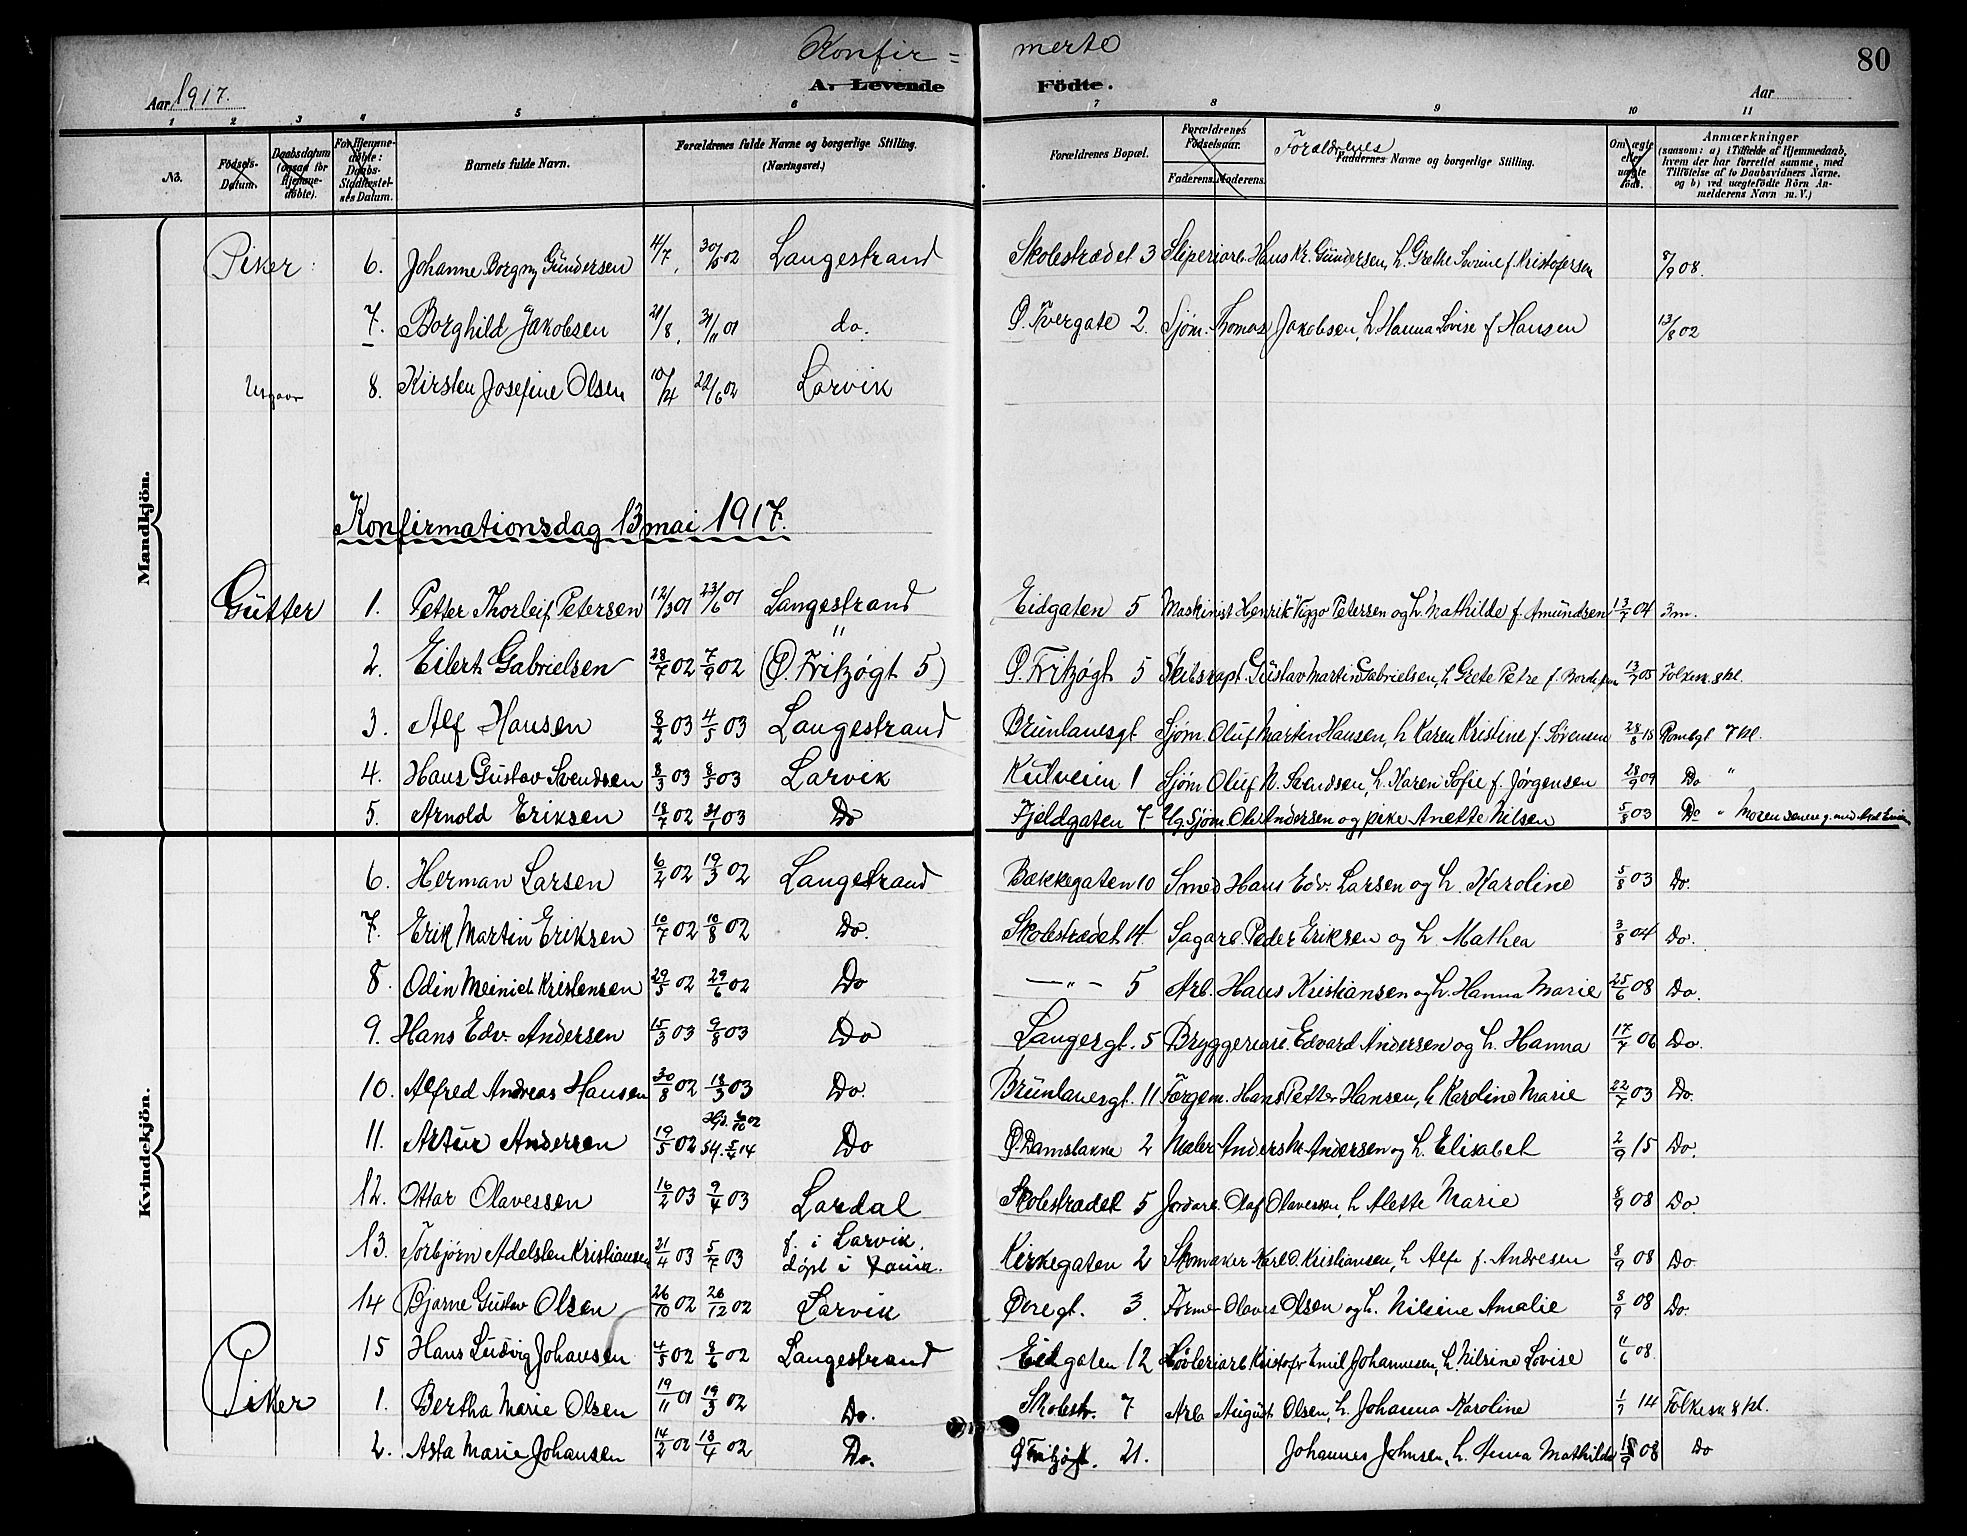 Konfir= merte
80
A. Levende Födte.
Aar 1917. Aar
1 2 3 4 5 6 7 8 9 10 11
No. Födsels-Datum. Daabsdatum (ogsaa for Hjemme-döbte). For Hjemme-döbte: Daabs-Stadfæstel-ses Datum. Barnets fulde Navn. Forældrenes fulde Navne og borgerlige Stilling. (Næringsvei.) Forældrenes Bopæl. Forældrenes Födselsaar. Faderens. Moderens. Forældrenes Faddernes Navne og borgerlige Stilling. Om ægte eller uægte födt. Anmærkninger (saasom: a) i Tilfælde af Hjemmedaab, hvem der har forrettet samme, med Tilföielse af to Daabsvidners Navne. og b) ved uægtefödte Börn An-melderens Navn m. V.)
Mandkjön.
Piker: 6. Johanne Borgny Gundersen 4/7, 30/5 02 Langestrand Skolestrædet 3 Sliperiarb. Hans Kr. Gundersen, h. Grethe Sovine f. Kristofersen 7/9 08.
7. Borghild Jakobsen 21/8, 31/11 01 do. Ø. Tvergate 2. Sjøm. Thomas Jakobsen, h Hanna Lovise f Hansen 13/8 02
Utgaar 8. Kirsten Josefine Olsen 10/4 22/6 02 Larvik
Konfirmationsdag 13 mai 1917.
Gutter 1. Petter Thorleif Petersen 12/3 01 23/6 01 Langestrand Eidgaten 5 Maskinist Henrik Viggo Petersen og h. Mathilde f. Amundsen 13/7 04 3m.
2. Eilert Gabrielsen 28/7 02 7/9 02 " (Ø. Fritzøgt 5) Ø. Fritzøgt 5 Skibskapt. Gustav Martin Gabrielsen, h Grete Petre f. 13/7 05 Folkesk. 8 kl.
3. Alf Hansen 8/2 03 4/5 03 Langestrand Brunlanesgt Sjøm. Oluf Martin Hansen, h Karen Kristine f. Sørensen 28/8 15 7 kl.
4. Hans Gustav Svendsen 8/3 03 8/5 03 Larvik 1 Sjøm Oluf N. Svendsen, h. Karen Sofie f. Jørgensen 28/9 09 Do "
5. Arnold Eriksen 18/7 02 31/1 03 Do Fjeldgaten 7 Ug. Sjøm. Ole Andersen og pike Anette Nilsen 5/8 03 Do " Moren senere g. med
Kvindekjön.
6. Herman Larsen 6/2 02 19/3 02 Langestrand Bækkegaten 10 Smed Hans Edv. Larsen og h. Karoline 5/8 03 Do.
7. Erik Martin Eriksen 10/7 02 10/8 02 Do. Skolestrædet 14 Sagarb. Peder Eriksen og h. Mathea 3/8 04 Do.
8. Odin Meinich Kristensen 29/5 02 29/6 02 Do — " — 5 Arb. Hans Kristiansen og h. Hanna Marie 25/6 08 Do.
9. Hans Edv. Andersen 15/3 03 9/8 03 Do Langesgt. 5 Bryggeriarb. Edvard Andersen og h. Hanna 17/7 06 Do.
10. Alfred Andreas Hansen 30/8 02 18/3 03 Do. Brunlanesgt. 11 Hans Petter Hansen, h Karoline Marie 22/7 03 Do.
11. Artur Andersen 19/5 02 Hjd. 6/10 02 St. 5/4 14 Do Ø. Damsbakke 2 Maler Anders M. Andersen og h. Elisabet 2/9 15 Do.
12. Ottar Olavessen 16/2 03 9/4 03 Lardal Skolestrædet 5 Jordarb. Olaf Olavessen, h Alette Marie 8/9 08 Do.
13. Torbjørn Adelsten Kristiansen 21/4 03 5/7 03 f. i Larvik, døpt i Kirkegaten 2 Skomaker Karl O. Kristiansen, h Alfa f. Andresen 8/9 08 Do.
14 Bjarne Gustav Olsen 26/10 02 26/12 02 Larvik Øvregt. 3. Former Olaves Olsen og h. Nilsine Amalie 8/9 08 Do.
15 Hans Ludvig Johansen 4/5 02 8/6 02 Langestrand Eidgaten 12 Høvleriarb. Kristofr Emil Johannesen, h. Nilsine Lovise 11/6 08.
Piker 1. Bertha Marie Olsen 19/11 01 19/3 02 Do. Skolestr. 7 Arb. August Olsen, h. Johanna Karoline 1/7 14 Folkesk 8 kl.
2. Asta Marie Johansen 14/2 02 13/4 02 Do. Ø Fritzøgt. 21. Johannes Johnsen, h. Anna Mathilde 18/9 08 Do